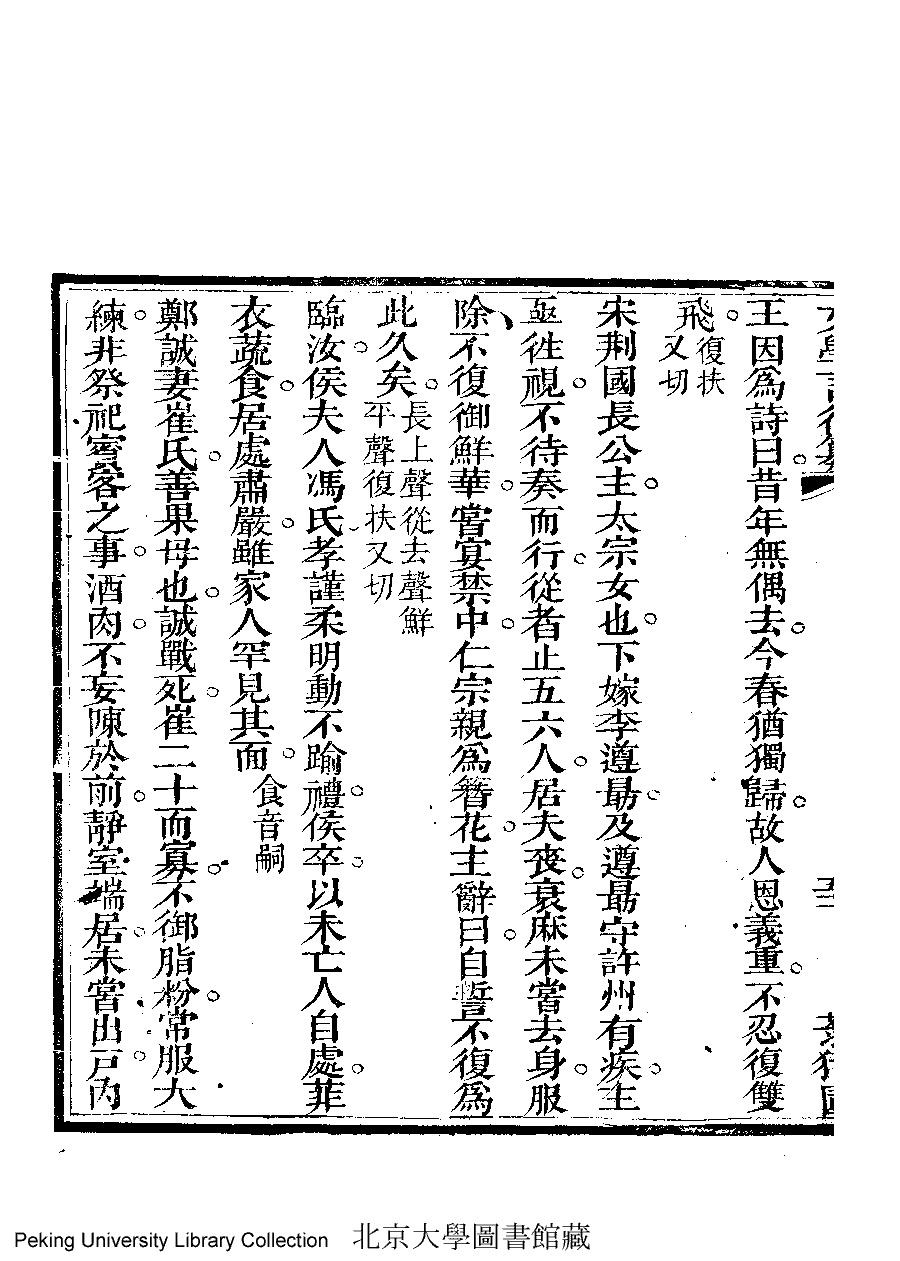 王因爲詩曰。昔年無偶去。今春猶獨歸。故人恩義重。不忍復雙
飛。復扶又切
宋荆國長公主。太宗女也。下嫁李遵勗。及遵勗守許州有疾。主
亟徃視。不待奏而行。從者止五六人。居夫喪。衰麻未嘗去身。服
除不復御鮮華。嘗宴禁中。仁宗親爲簪花。主辭曰。自誓不復爲
此久矣。長上聲從去聲鮮平聲復扶又切
臨汝侯夫人馮氏。孝謹柔明。動不踰禮。侯卒。以未亡人自處。菲
衣蔬食。居處肅嚴。雖家人罕見其面。食音嗣
鄭誠妻崔氏。善果母也。誠戰死。崔二十而寡。不御脂粉。常服大
練。非祭祀賓客之事。酒肉不妄陳於前。靜室端居。未嘗出戸內
Peking University Library Collection 北京大學圖書館藏